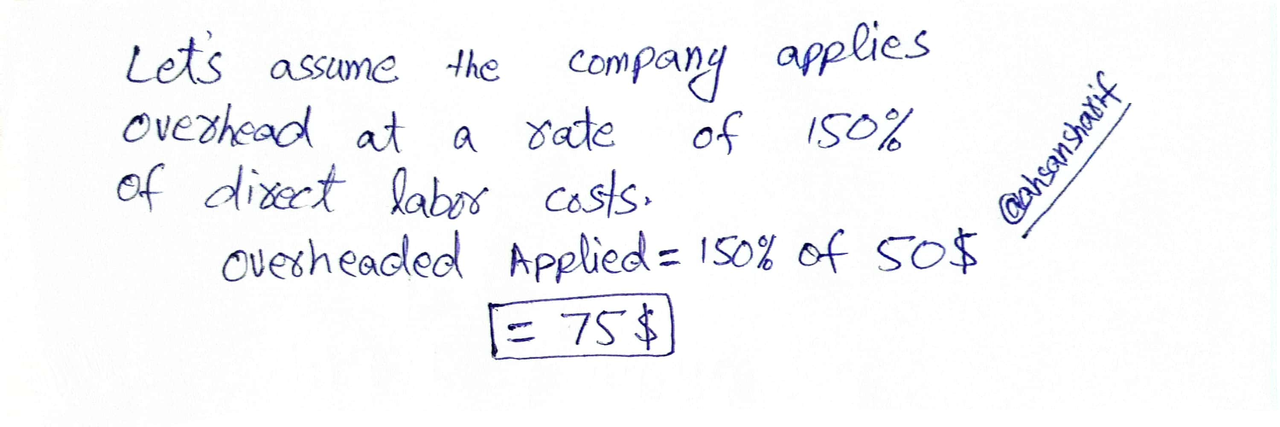 Let's assume the company applies
overhead at a rate of 150%
of direct labor costs.
overheaded Applied = 150% of 50$
= 75$
@ahsansharif